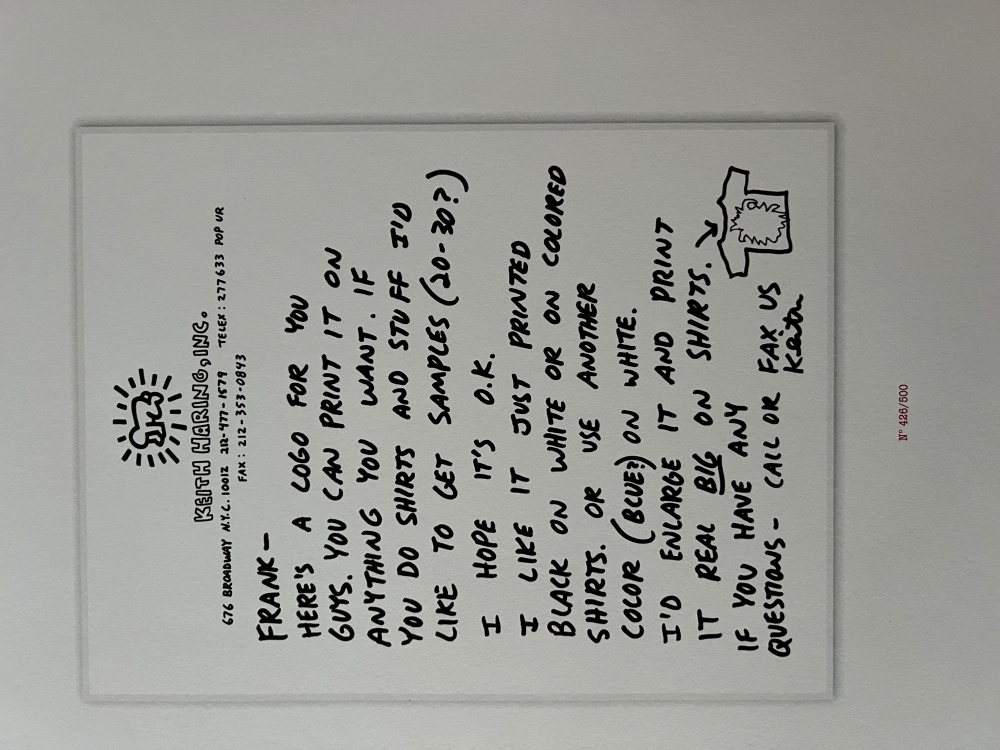 KEITH HARING, INC.
676 BROADWAY N.Y.C. 10012 212-477-1579 TELEX: 277633 POP UR
FAX: 212-353-0843
FRANK—
HERE'S A LOGO FOR YOU
GUYS. YOU CAN PRINT IT ON
ANYTHING YOU WANT. IF
YOU DO SHIRTS AND STUFF I'D
LIKE TO GET SAMPLES (20-30?)
I HOPE IT'S O.K.
I LIKE IT JUST PRINTED
BLACK ON WHITE OR ON COLORED
SHIRTS. OR USE ANOTHER
COLOR (BLUE?) ON WHITE.
I'D ENLARGE IT AND PRINT
IT REAL BIG ON SHIRTS.
IF YOU HAVE ANY
QUESTIONS - CALL OR FAX US
Keith
N° 426/500